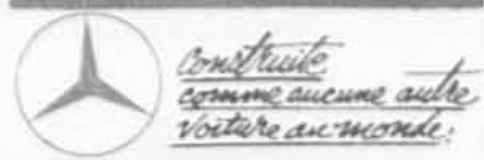 Construite
comme aucune autre
voiture au monde: